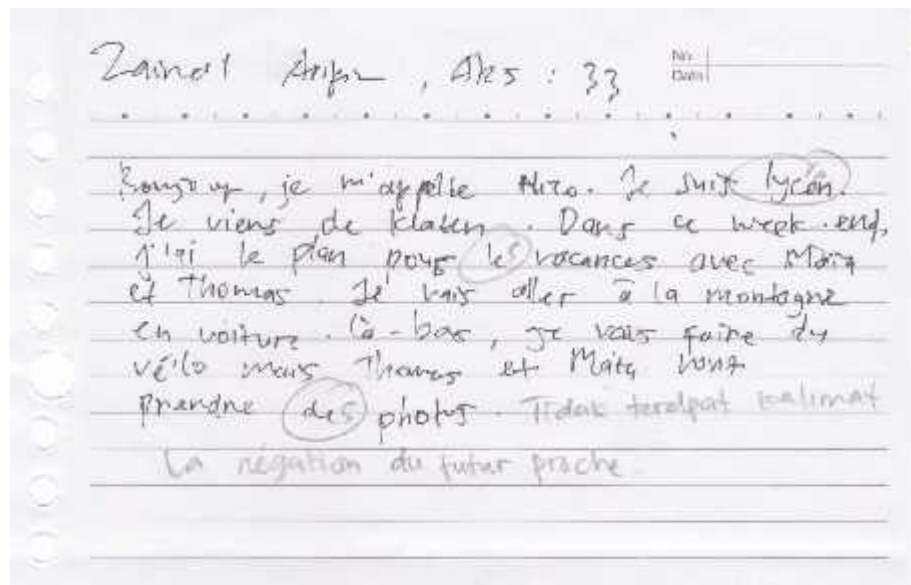 Zainal Aripin, Abs : 33
No
Date
Bonjour, je m'appelle Nico. Je suis lycén.
Je viens de Klaten. Dans ce week-end,
j'ai le plan pour les vacances avec Maia
et Thomas. Je vais aller à la montagne
en voiture. Là-bas, je vais faire du
vélo mais Thomas et Maia vont
prendre des photos. Tidak terdpat kalimat
La négation du futur proche.